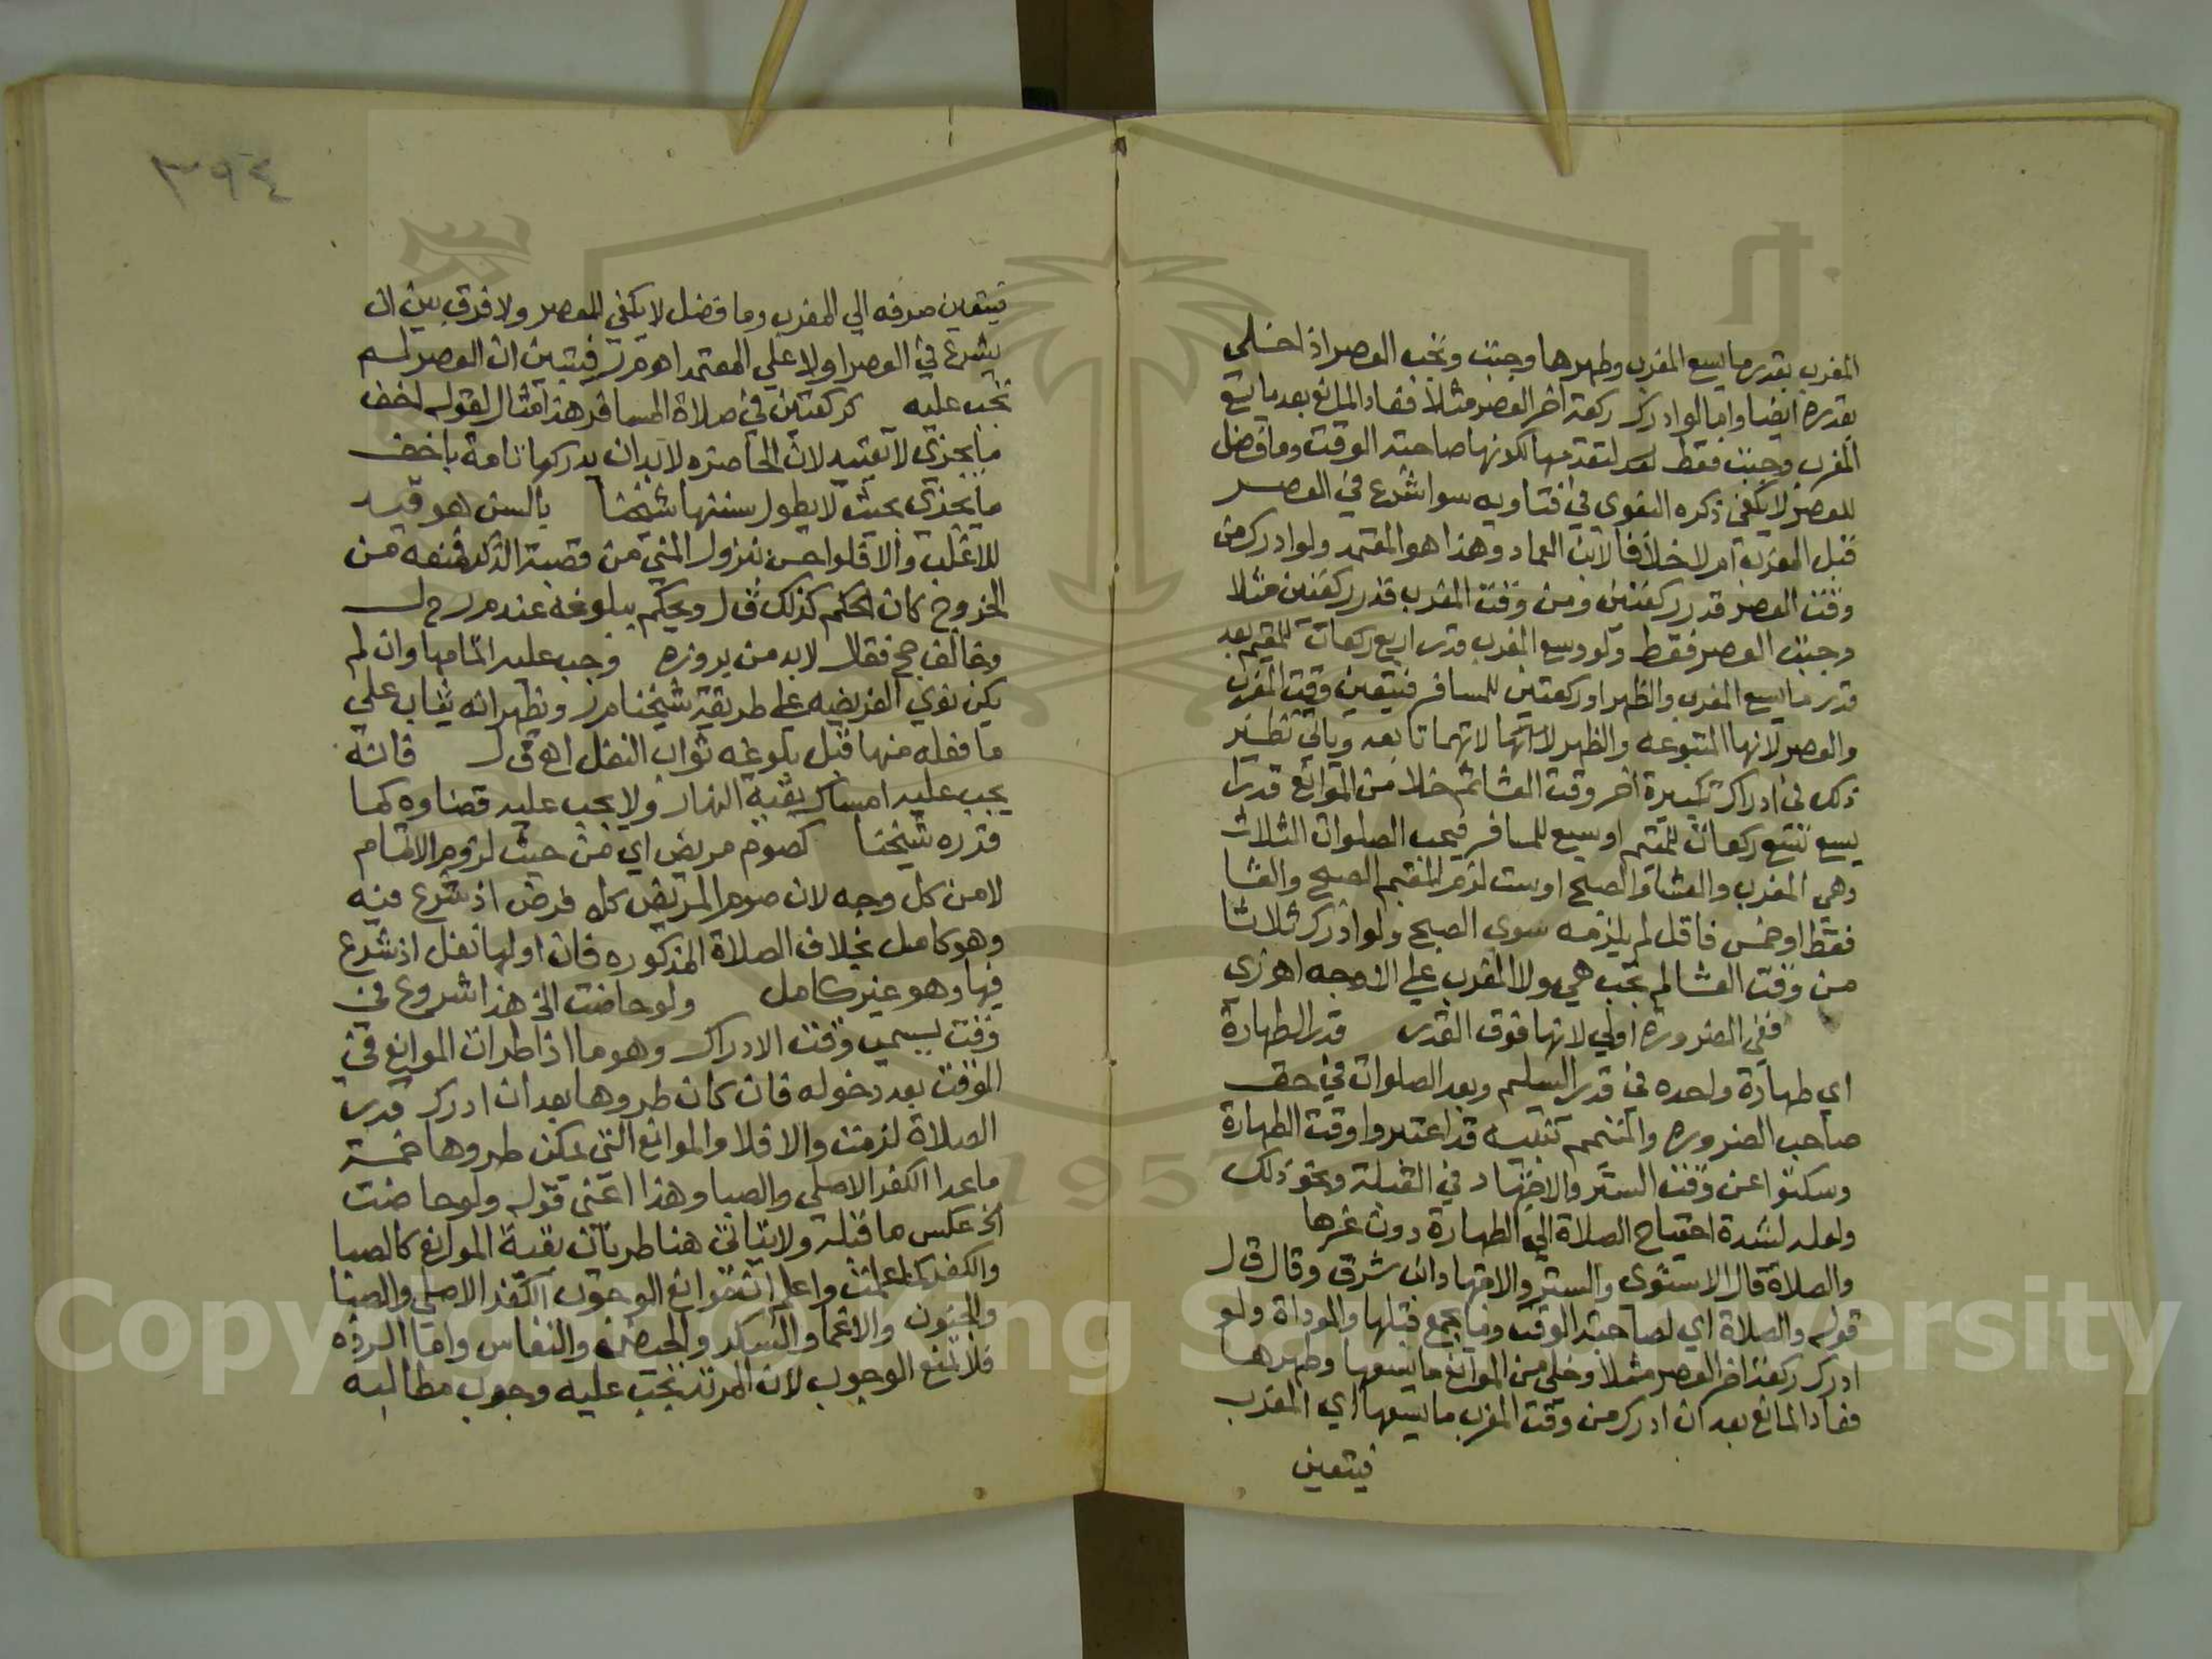 المغرب بقدر ما يسع المغرب وطهرها وجبت وتجب العصر اذا خلي
بقدره ايضا واما لو ادرك ركعة اخر العصر مثلا فعاد المانع بعد ما يسع
المغرب وجبت فقط لتقدمها لكونها صاحبة الوقت وما فضل
للعصر لا يكفي ذكره البغوي في فتاويه سوا شرع في العصر
قبل المغرب ام لا خلافا لابن العماد وهذا هو المعتمد ولو ادرك من
وقت العصر قدر ركعتين ومن وقت المغرب قدر ركعتين مثلا
وجبت العصر فقط ولو وسع المغرب قدر اربع ركعات للمقيم بعد
قدر ما يسع المغرب والظهر او ركعتين للمسافر فيتعين وقت المغرب
والعصر لانها المتبوعه والظهر لانهما تابعه وياتي نظير
ذلك في ادراك تكبيرة اخر وقت العشا ثم خلا من الموانع قدرا
يسع تسع ركعات للمقيم او سبع للمسافر فيجب الصلوات الثلاث
وهي المغرب والعشا والصبح او ست لزم المقيم الصبح والعشا
فقط او خمس فاقل لم يلزمه سوى الصبح ولو ادرك ثلاثا
من وقت العشا لم تجب هي ولا المغرب علي الاوجه اهـ زي
ففي الضروره اولي لانها فوق القدر قدر الطهارة
اي طهارة واحده في قدر السليم وبعد الصلوات في حق
صاحب الضروره والمتيمم تنبيه قد اعتبروا وقت الطهارة
وسكتوا عن وقت الستر والاجتهاد في القبلة ونحو ذلك
ولعله لشدة احتياج الصلاة الي الطهارة دون غيرها
والصلاة قال الاسنوى والستر والاجتهاد ان شرق وقال ق ل
قوله والصلاة اي لصاحبة الوقت وما يجمع قبلها والموداة ولو
ادرك ركعة اخر العصر مثلا وخلي من الموانع ما يسعها وطهرها
فعاد المانع بعد ان ادرك من وقت المغرب ما يسعها اي المغرب
فيتعين
٣٩٤
فيتعين صرفه الي المغرب وما فضل لا يكفي للعصر ولا فرق بين ان
يشرع في العصر اولا علي المعتمد اهـ م ر فيتبين ان العصر لم
تجب عليه كركعتين في صلاة المسافر هذا مثال لقوله اخف
ما يجزي لا تقييد لان الحاصره لابد ان يدركها تامة باخف
ما يجزي بحيث لا يطول سننها شيخنا بالسن هو قيد
للاغلب والا فلو احس بنزول المني من قصبة الذكر فمنعه من
الخروج كان الحكم كذلك ق ل ويحكم ببلوغه عند م ر ح ل
وخالف حج فقال لابد من بروزه وجب عليه اتمامها وان لم
يكن نوي الفريضه علي طريقة شيخنا م ر ويظهر انه يثاب علي
ما فعله منها قبل بلوغه ثواب النفل اهـ ق ل فانه
يجب عليه امساك بقية النهار ولا يجب عليه قضاوه كما
قدره شيخنا كصوم مريض اي من حيث لزوم الاتمام
لا من كل وجه لان صوم المريض كله فرض اذ شرع فيه
وهو كامل بخلاف الصلاة المذكوره فان اولها نفل اذ شرع
فيها وهو غير كامل ولو حاضت الخ هذا شروع في
وقت يسمي وقت الادراك وهو ما اذا طرات الموانع في
الوقت بعد دخوله فان كان طروها بعد ان ادرك قدر
الصلاة لزمت والا فلا والموانع التي يمكن طروها خمسة
ماعدا الكفر الاصلي والصبا وهذا اعني قوله ولو حاضت
الخ عكس ما قبله ولا يتاتي هنا طريان بقية الموانع كالصبا
والكفر كما علمت واعلم ان موانع الوجوب الكفر الاصلي والصبا
والجنون والاغما والسكر والحيض والنفاس واما الرده
فلا تمنع الوجوب لان المرتد تجب عليه وجوب مطالبه